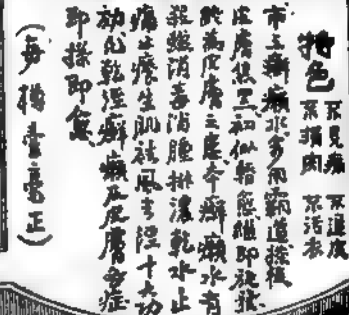 特色
不見痛 不退皮
不損肉 不沾衣
市上癬癩水多用霸道搽後
皮膚焦黑初似稍愈繼即旋發
為皮膚之患本癬癩水有
殺虫消毒消腫排濃乾水止
痛止癢生肌祛風去溼十大功
効凡乾溼癬癩及皮膚各症
即搽即愈
(每樽壹毫正)